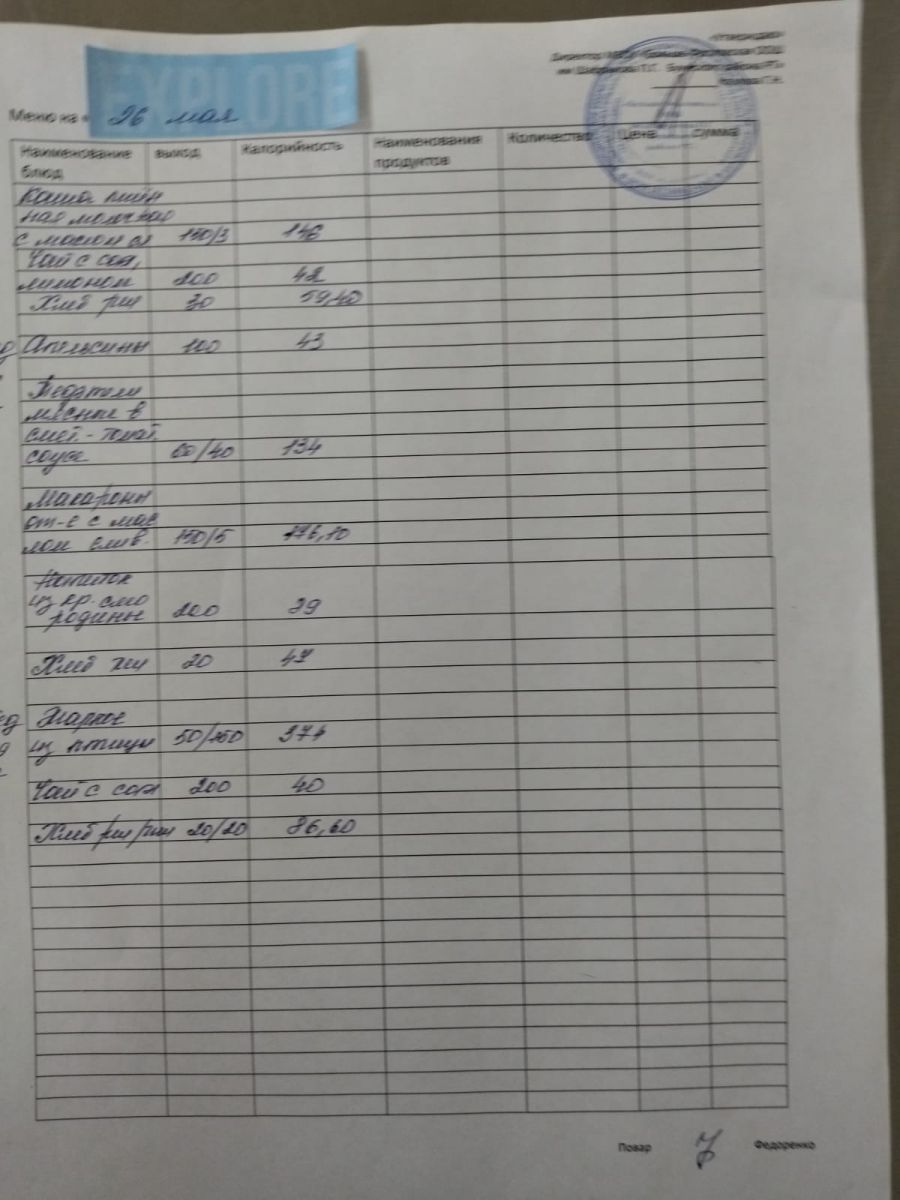 «Утверждаю»
EXPLORE
Меню на « 26 мая
Наименование блюд
выход
Калорийность
Наименования продуктов
Количество
Цена
сумма
Каша пшён
ная молочная
с маслом сл 150/3 146
Чай с сах,
лимоном 200 42
Хлеб рш 30 59,40
Апельсины 100 43
мясные в
смет.-томат
соусе 60/40 134
Макароны
от-е с мас
лом слив. 150/5 176,10
Напиток
из кр. смо
родины 200 39
Хлеб 20 47
Жаркое
из птицы 50/150 374
Чай с сах 200 40
Хлеб 20/20 86,60
Повар
Федоренко